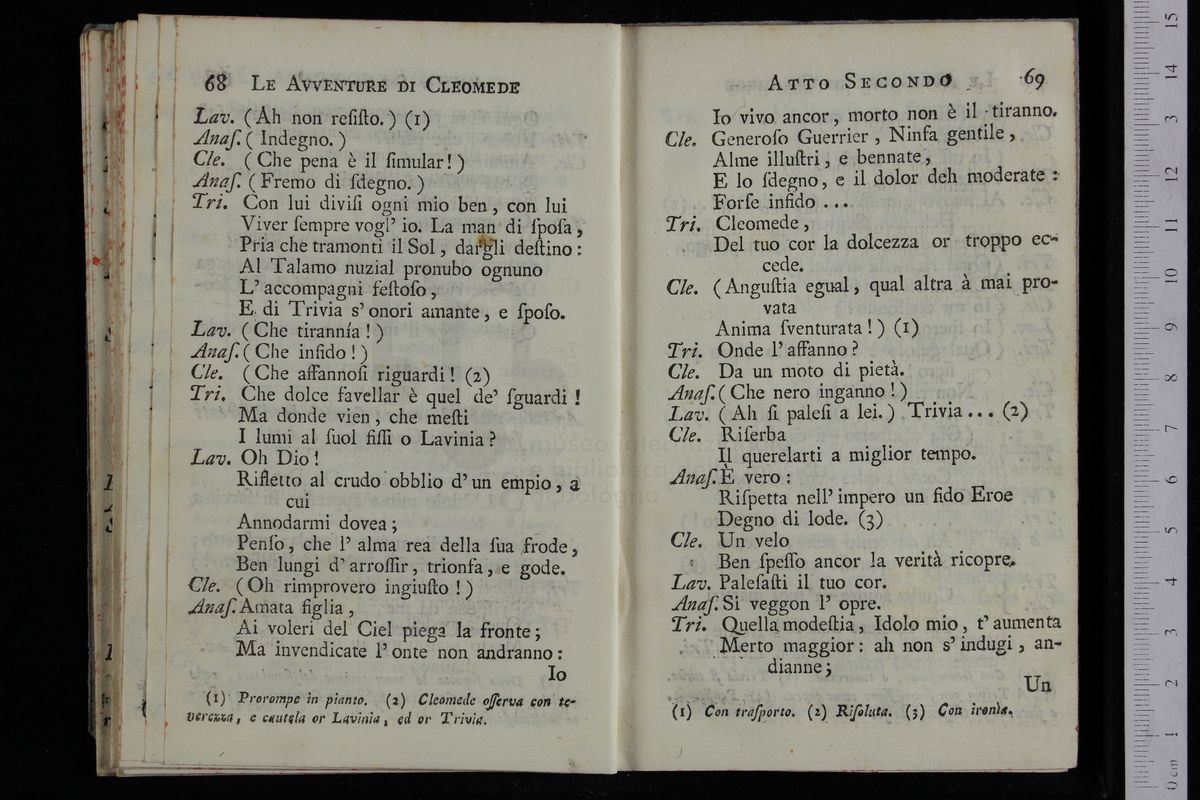 68 LE AVVENTURE DI CLEOMEDE
Lav. (Ah non reſiſto.) (1)
Anaſ. (Indegno.)
Cle. (Che pena è il ſimular!)
Anaſ. (Fremo di ſdegno.)
Tri. Con lui diviſi ogni mio ben, con lui
Viver ſempre vogl' io. La man di ſpoſa,
Pria che tramonti il Sol, dargli deſtino:
Al Talamo nuzial pronubo ognuno
L' accompagni feſtoſo,
E di Trivia s' onori amante, e ſpoſo.
Lav. (Che tirannía!)
Anaſ. (Che infido!)
Cle. (Che affannoſi riguardi! (2)
Tri. Che dolce favellar è quel de' ſguardi!
Ma donde vien, che meſti
I lumi al ſuol fiſſi o Lavinia?
Lav. Oh Dio!
Rifletto al crudo obblio d' un empio, a
cui
Annodarmi dovea;
Penſo, che l' alma rea della ſua frode,
Ben lungi d' arroſſir, trionfa, e gode.
Cle. (Oh rimprovero ingiuſto!)
Anaſ. Amata figlia,
Ai voleri del Ciel piega la fronte;
Ma invendicate l' onte non andranno:
Io
(1) Prorompe in pianto. (2) Cleomede oſſerva con te-
nerezza, e cautela or Lavinia, ed or Trivia.
ATTO SECONDO 69
Io vivo ancor, morto non è il tiranno.
Cle. Generoſo Guerrier, Ninfa gentile,
Alme illuſtri, e bennate,
E lo ſdegno, e il dolor deh moderate:
Forſe infido ...
Tri. Cleomede,
Del tuo cor la dolcezza or troppo ec-
cede.
Cle. (Anguſtia egual, qual altra à mai pro-
vata
Anima ſventurata!) (1)
Tri. Onde l' affanno?
Cle. Da un moto di pietà.
Anaſ. (Che nero inganno!)
Lav. (Ah ſi paleſi a lei.) Trivia... (2)
Cle. Riſerba
Il querelarti a miglior tempo.
Anaſ. È vero:
Riſpetta nell' impero un fido Eroe
Degno di lode. (3)
Cle. Un velo
Ben ſpeſſo ancor la verità ricopre.
Lav. Paleſaſti il tuo cor.
Anaſ. Si veggon l' opre.
Tri. Quella modeſtia, Idolo mio, t' aumenta
Merto maggior: ah non s' indugi, an-
dianne;
Un
(1) Con traſporto. (2) Riſoluta. (3) Con ironìa.
museo
biblioteca
bologna
0 cm 1 2 3 4 5 6 7 8 9 10 11 12 13 14 15